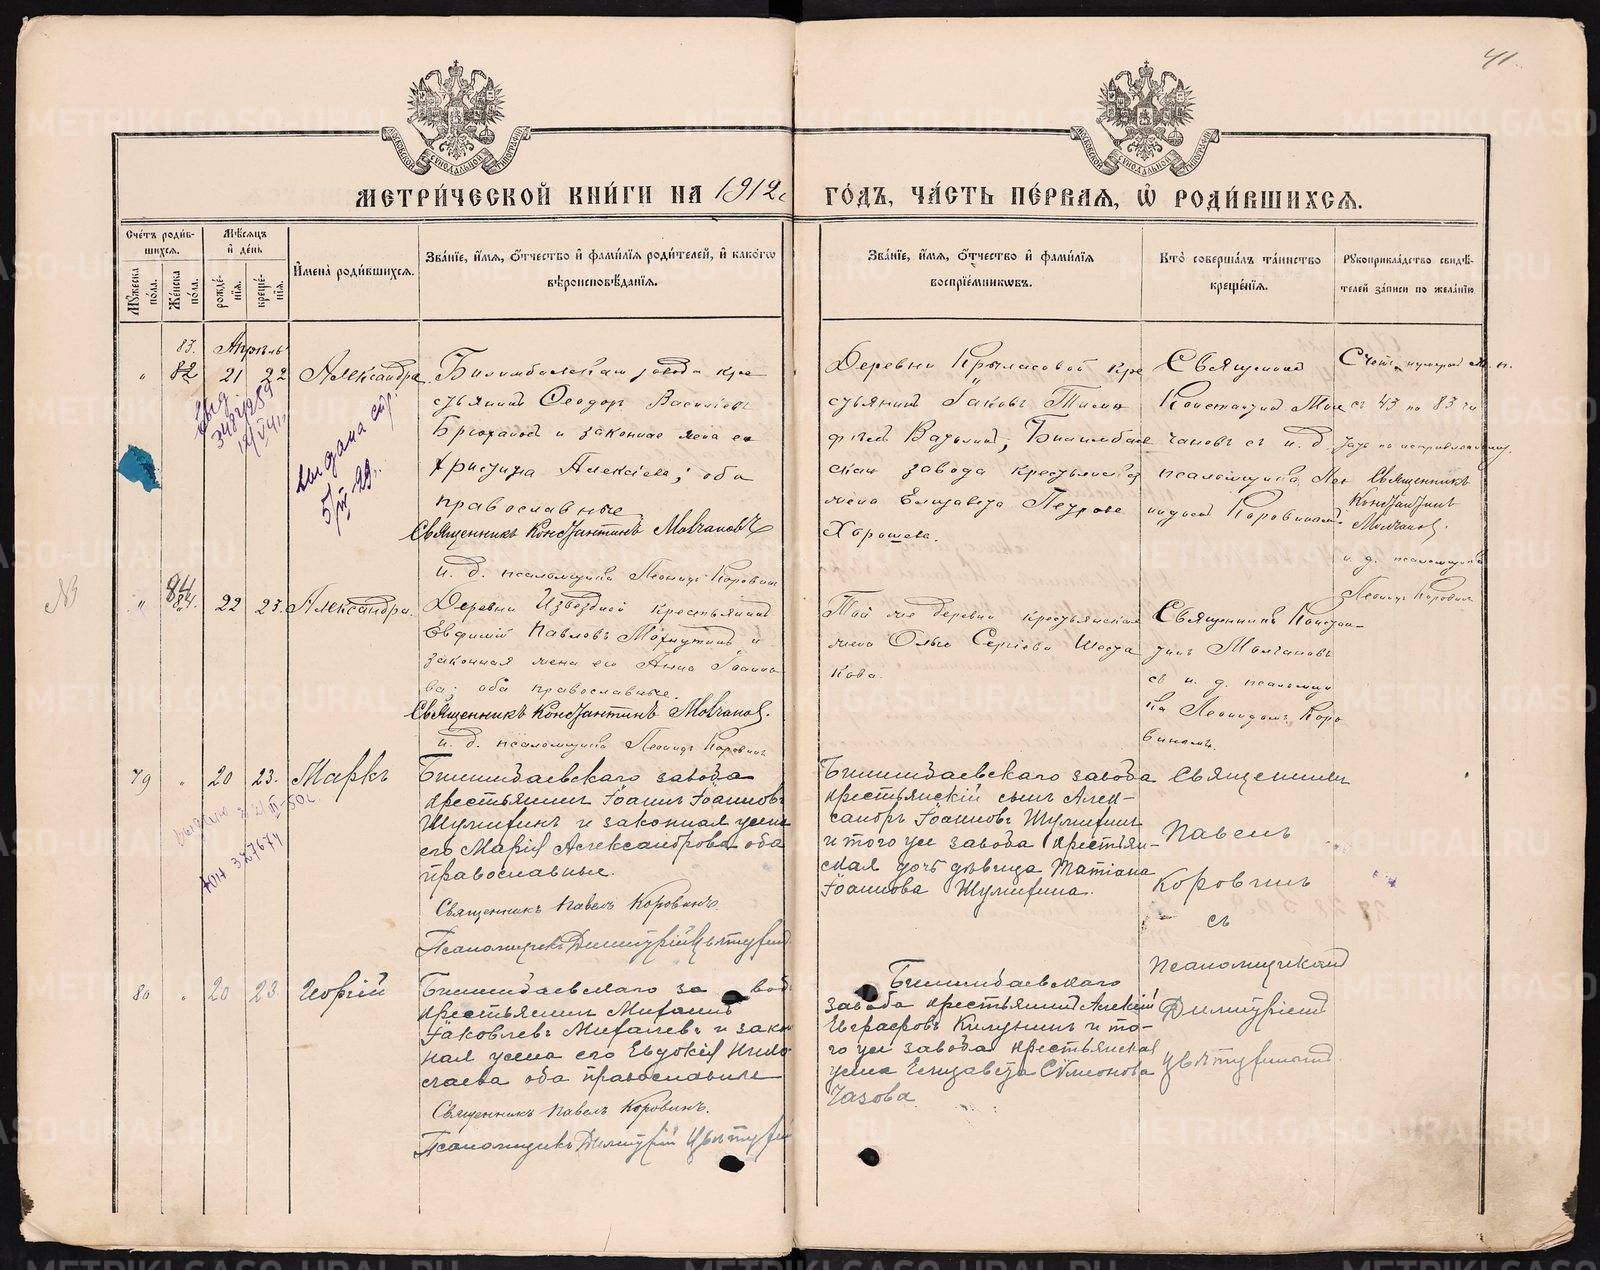 41.
МЕТРИ́ЧЕСКОЙ КНИ́ГИ НА 1912 ГО́ДЪ, ЧА́СТЬ ПЕ́РВАѦ, Ѡ РОДИ́ВШИХСѦ.
Сче́тъ роди́в-
шихсѧ.
Мꙋ́жеска по́ла.
Же́нска по́ла.
Мѣ́сѧцъ
и҆ де́нь
рожде́-
нїѧ.
креще́-
нїѧ.
И҆мена̀ роди́вшихсѧ.
Зва́нїе, и҆́мѧ, ѻ҆́тчество и҆ фами́лїѧ роди́телей, и҆ како́гѡ
вѣроисповѣ́данїѧ.
Зва́нїе, и҆́мѧ, ѻ҆́тчество и҆ фами́лїѧ
воспрїе́мникѡвъ.
Кто̀ соверша́лъ та́инство
креще́нїѧ.
Рꙋкоприкла́дство свидѣ́-
телей за́писи по жела́нїю.
83.
Апрѣль
82 21 22 Александра.
Билимбаевскаго завода кре
стьянинъ Ѳеодоръ Василіевъ
законная жена его
Христина Алексіева; оба
православные
Священникъ Константинъ Молчановъ
и. д. псаломщика Леонидъ Коровинъ
Деревни Крыласовой кре
стьянинъ Іаковъ
Билимбаев
скаго завода крестьянская
жена Елизавета Петрова
Хорошева.
Священникъ
Константинъ Мол
чановъ съ и. д.
псаломщика Лео
нидомъ Коровинымъ.
съ 43 по 83
Священникъ
Константинъ
Молчановъ.
и. д. псаломщика
Леонидъ Коровинъ
выдана
5/III 29.
84
84. 22 23. Александра.
Деревни Извездной крестьянинъ
Евфимій Павловъ и
законная жена его Анна Іоанно
ва; оба православные.
Священникъ Константинъ Молчановъ.
и. д. псаломщика Леонидъ Коровинъ
Той же деревни крестьянская
жена Ольга Сергіева Шеста
кова.
Священникъ Констан-
тинъ Молчановъ
съ и. д. псаломщи
ка Леонидомъ Коро
винымъ.
79 " 20 23. Маркъ
Билимбаевскаго завода
крестьянинъ Іоаннъ Іоанновъ
Шулифинъ и законная жена
его Марія Александрова оба
православные.
Священникъ Павелъ Коровинъ.
Билимбаевскаго завода
крестьянскій сынъ Алек-
сандръ Іоанновъ Шулифинъ
и того же завода крестьян-
ская дочь дѣвица Татіана
Іоаннова Шулифина.
Священникъ
Павелъ
Коровинъ
съ
Псаломщикомъ
Димитріемъ
ЮН 327674
80 " 20 23. Георгій
Билимбаевскаго завод
крестьянинъ Михаилъ
Іаковлевъ и закон
ная жена его Евдокія Нико
лаева оба православные
Священникъ Павелъ Коровинъ.
Билимбаевскаго
завода крестьянинъ Алексій
Евграфовъ и то-
го же завода крестьянская
жена Елизавета Сѵмеонова
Чазова